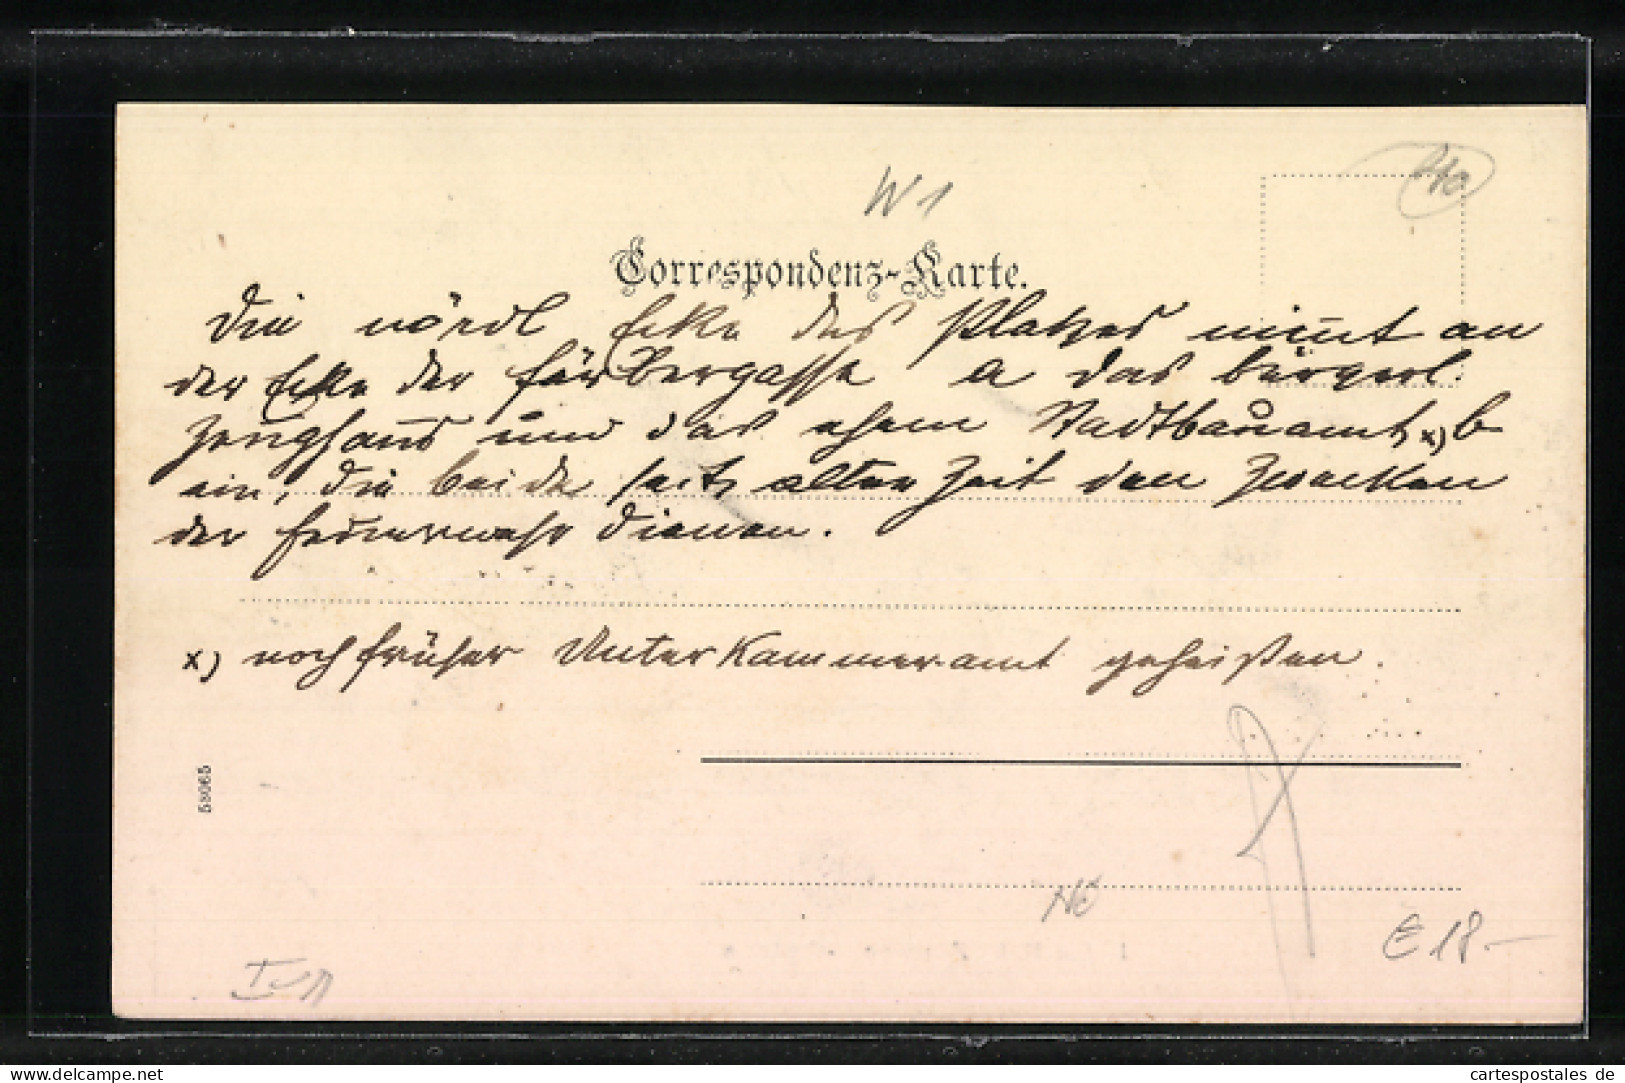 W 1
40
Correspondenz-Karte.
Die nördl Ecke des Platzes nimt an
der Ecke der Färbergasse a das bürgerl.
Zeughaus und das ehem Stadtbauamt x) b
ein, die beide seit alter Zeit den Zwecken
der Feuerwehr dienen.
x) noch früher Unterkammeramt geheißen.
58065
NÖ
€ 18.-
I-II
cartespostales de